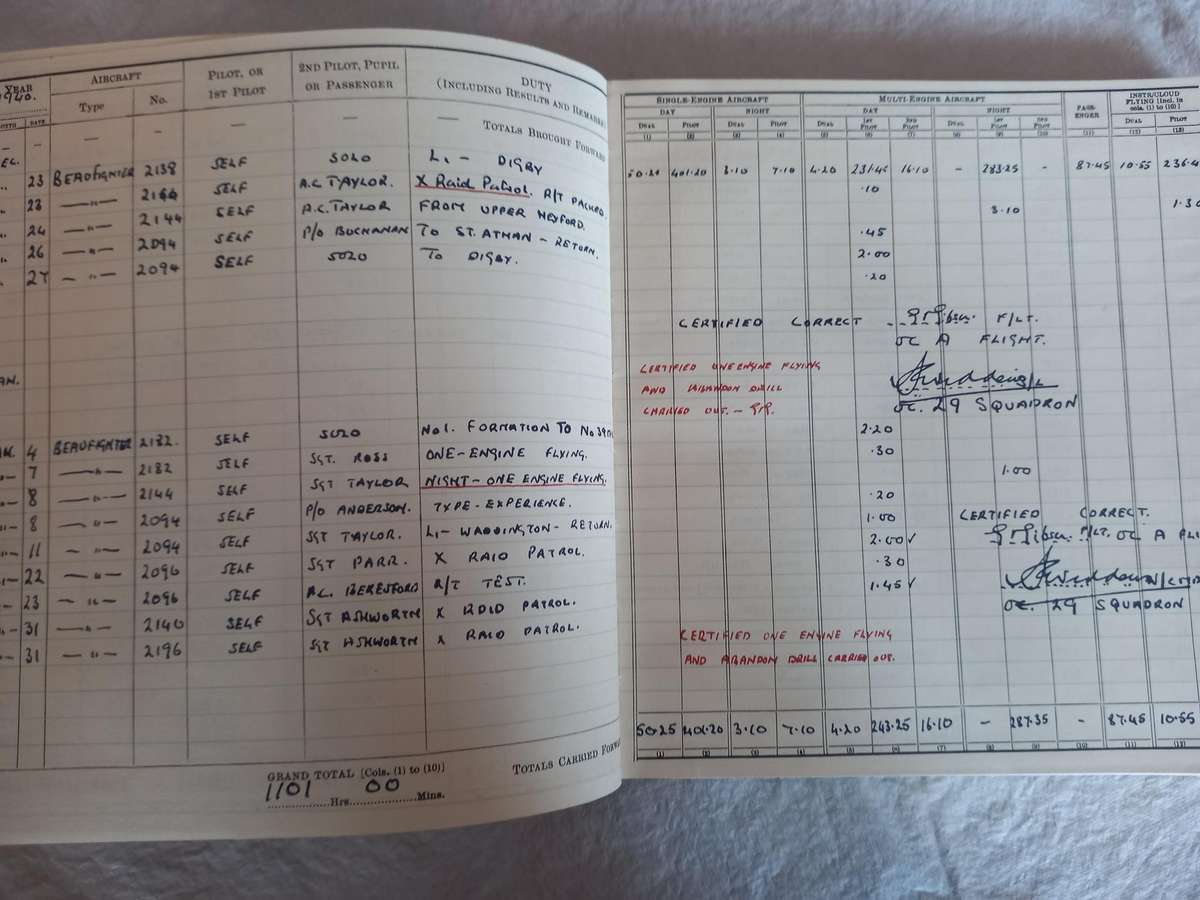 YEAR AIRCRAFT PILOT, OR 2ND PILOT, PUPIL DUTY
1940. Type No. 1ST PILOT OR PASSENGER (INCLUDING RESULTS AND REMARKS)
MONTH DATE
— — — — — — TOTALS BROUGHT FORWARD
23 BEAUFIGHTER 2138 SELF SOLO L.- DIGBY
23 —"— SELF A.C TAYLOR. X Raid Patrol. R/T PACKED.
24 —"— 2144 SELF A.C. TAYLOR FROM UPPER HEYFORD.
26 —"— 2094 SELF P/O BUCHANAN TO ST. ATHAN - RETURN.
27 —"— 2094 SELF SOLO TO DIGBY.
AN.
4 BEAUFIGHTER 2132. SELF SOLO No1. FORMATION TO No
7 —"— 2132 SELF SGT. ROSS ONE-ENGINE FLYING.
8 —"— 2144 SELF SGT TAYLOR NIGHT-ONE ENGINE FLYING.
8 —"— 2094 SELF P/O ANDERSON. TYPE-EXPERIENCE.
11 —"— 2094 SELF SGT TAYLOR. L,- WADDINGTON- RETURN.
22 —"— 2096 SELF SGT PARR. X RAID PATROL.
23 —"— 2096 SELF A.C. BERESFORD R/T TEST.
31 —"— 2140 SELF SGT ASHWORTH X RAID PATROL.
31 —"— 2196 SELF SGT ASHWORTH X RAID PATROL.
GRAND TOTAL [Cols. (1) to (10)] TOTALS CARRIED FORWARD
1101 Hrs. 00 Mins.
SINGLE-ENGINE AIRCRAFT MULTI-ENGINE AIRCRAFT PASS-ENGER INSTR/CLOUD FLYING [Incl. in cols. (1) to (10)]
DAY NIGHT DAY NIGHT
DUAL PILOT DUAL PILOT DUAL 1ST PILOT 2ND PILOT DUAL 1ST PILOT 2ND PILOT DUAL PILOT
(1) (2) (3) (4) (5) (6) (7) (8) (9) (10) (11) (12) (13)
401.20 3.10 7.10 4.20 231.45 16.10 - 283.25 - 87.45 10.55
.10
3.10 1.30
.45
2.00
.20
CERTIFIED CORRECT F/LT.
OC A FLIGHT.
CERTIFIED ONE ENGINE FLYING
AND ABANDON DRILL
CARRIED OUT.
OC. 29 SQUADRON
2.20
.30
1.00
.20
1.00 CERTIFIED CORRECT.
2.00✓ F/LT. OC A FLI
.30
1.45✓
OC. 29 SQUADRON
CERTIFIED ONE ENGINE FLYING
AND ABANDON DRILL CARRIED OUT.
50.25 401.20 3.10 7.10 4.20 243.25 16.10 - 287.35 - 87.45 10.55
(1) (2) (3) (4) (5) (6) (7) (8) (9) (10) (11) (12)